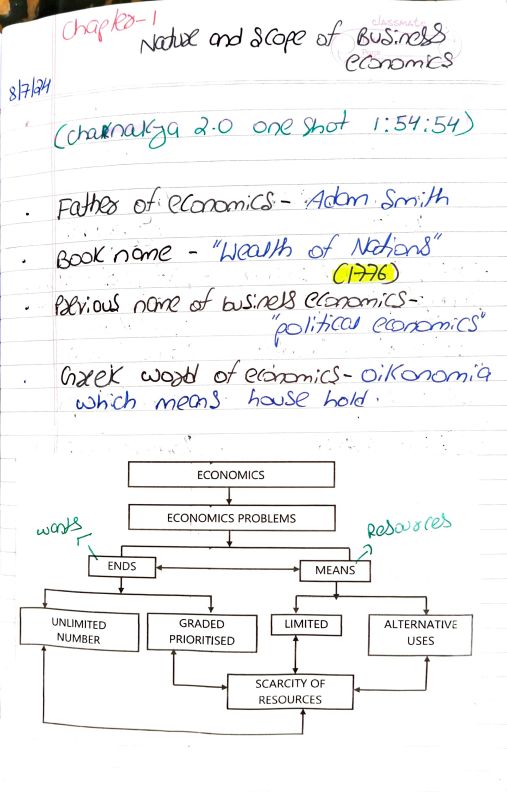 Chapter-1
classmate
Nature and Scope of Business
economics
8/7/24
(chanakya 2.0 one shot 1:54:54)
. Father of economics - Adam Smith
. Book name - "Wealth of Nations"
(1776)
. Previous name of business economics -
"political economics"
. Greek word of economics - Oikonomia
which means house hold.
ECONOMICS
ECONOMICS PROBLEMS
wants
Resources
ENDS
MEANS
UNLIMITED
NUMBER
GRADED
PRIORITISED
LIMITED
ALTERNATIVE
USES
SCARCITY OF
RESOURCES